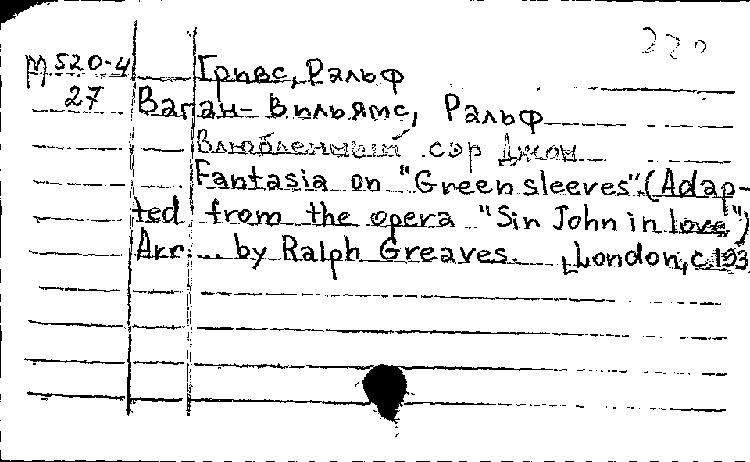 220
М 520-4 Гривс, Ральф
27 Воган-Вильямс, Ральф
Влюбленный сэр Джон
Fantasia on "Green sleeves". (Adap-
ted from the opera "Sin John in love")
Arr... by Ralph Greaves. London, c.193